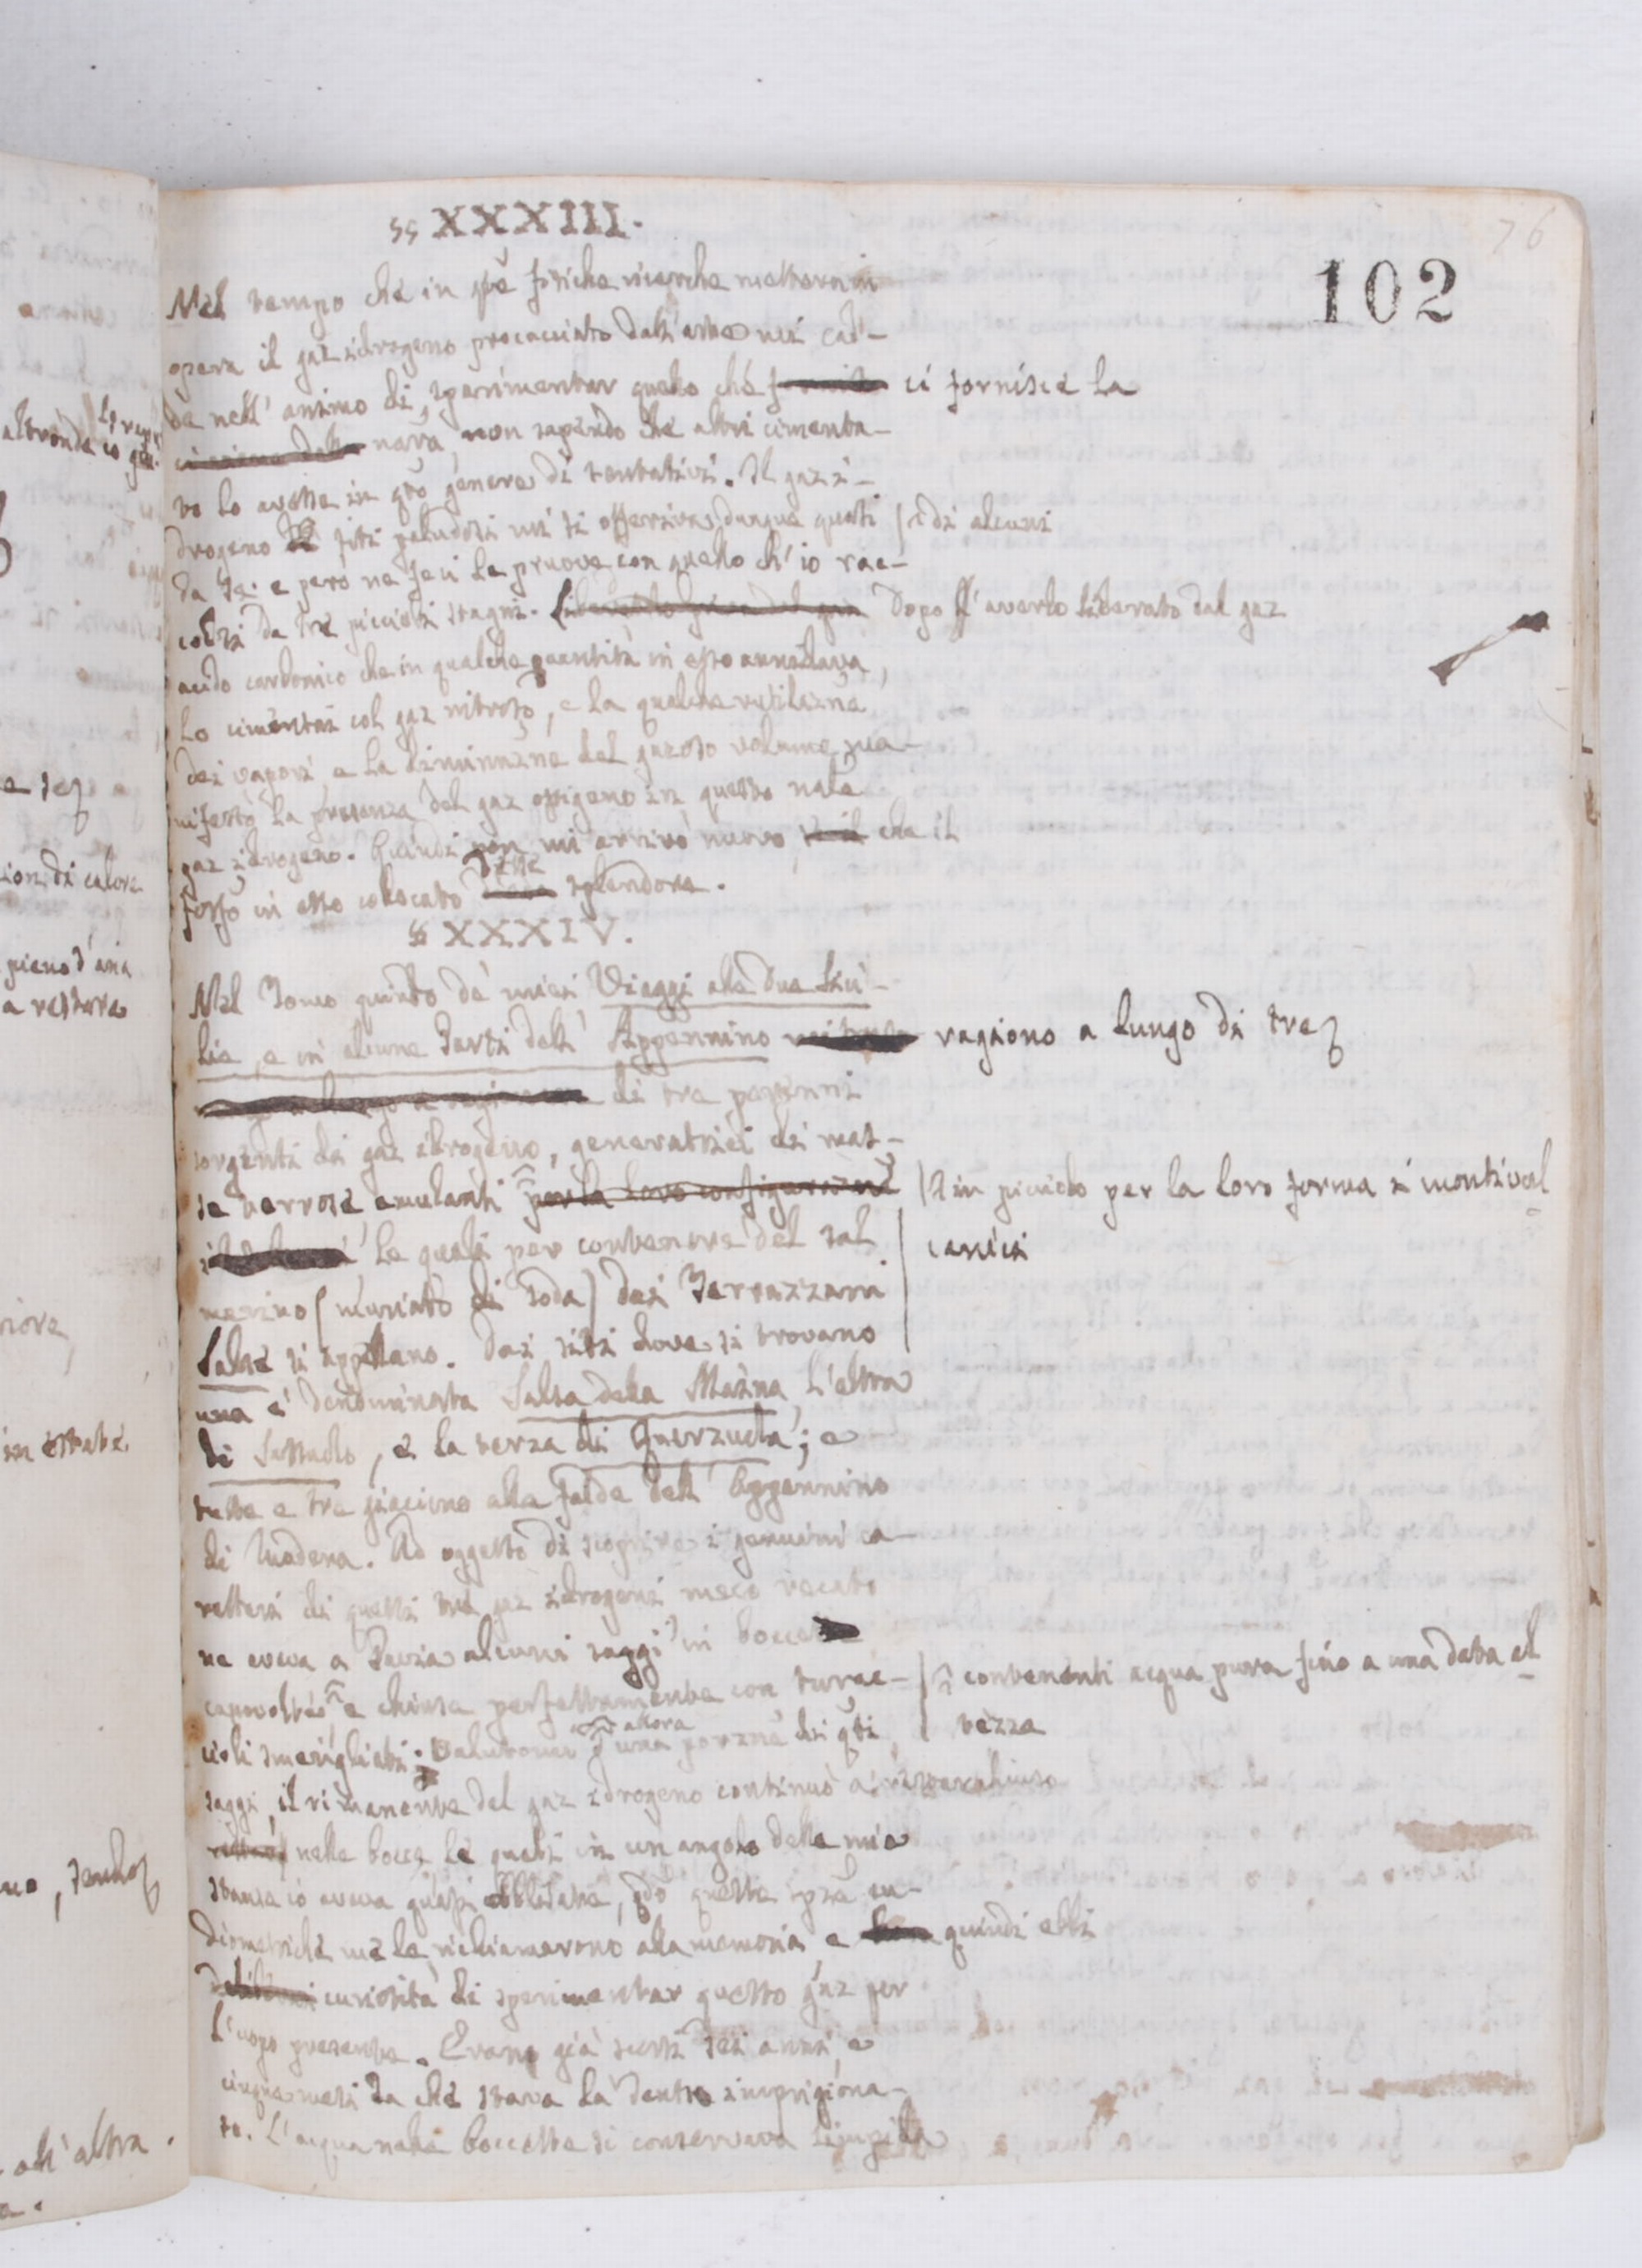 76
102
§§ XXXIII.
Nel tempo che in qte fisiche ricerche metteva in
opera il gaz idrogeno procacciato dall'arte mi cad-
de nell'animo di sperimentar quello che ci fornisce la
natura, non sapendo che altri cimenta-
to lo avesse in qto genere di tentativi. Il gaz i-
drogeno di siti paludosi mi si offeriva dunque quasi | di alcuni
da se: e però ne feci le pruove con quello ch'io rac-
colsi da tre piccioli stagni. Dopo d'averlo liberato dal gaz
acido carbonico che in qualche quantità in esso annidava,
lo cimentai col gaz nitroso, e la qualche rutilazne
dei vapori, e la diminuzne del gazoso volume ma-
nifestò la presenza del gaz ossigeno in questo natle
gaz idrogeno. Quindi non mi arrivò nuovo che il
fosfo in esso collocato desse splendore.
§ XXXIV.
Nel Tomo quinto de' miei Viaggi alle due Sici-
lie, e in alcune Parti dell'Appennino ragiono a lungo di tre
di tre perenni
sorgenti di gaz idrogeno, generatrici di mas-
se terrose, emulanti per la loro configurazne | in picciolo per la loro forma i monti vol
le quali per contenere del sal | canici
marino (muriato di soda) dai Terrazzani
Salse si appellano. Dai siti dove si trovano
una è denominata Salsa della Maina, l'altra
di Sassuolo, e la terza di Querzuola; e
tutte e tre giaciono alle falde dell'Appennino
di Modena. Ad oggetto di scoprire i genuini ca-
ratteri di questi tre gaz idrogeni meco recato
ne aveva a Pavia alcuni saggi in bocce
capovolte e chiuse perfettamente con turac- | contenenti acqua pura fino a una data al
cioli smerigliati. Valutomi allora una porzne di qti | tezza
saggi, il rimanente del gaz idrogeno continuò a star chiuso
nelle bocce le quali in un angolo della mia
stanza io aveva quasi obbliate, qdo queste spze eu-
diometriche me le richiamarono alla memoria, e quindi ebbi
curiosità di sperimentar questo gaz per
l'uopo presente. Erano già scorsi sei anni, e
cinque mesi da che stava là dentro imprigiona-
to. L'acqua nelle boccette si conservava limpida
altronde io già
e se
ion di calore
pieno d'aria
a restare
riore,
in estate.
no, sendo
all'altra.